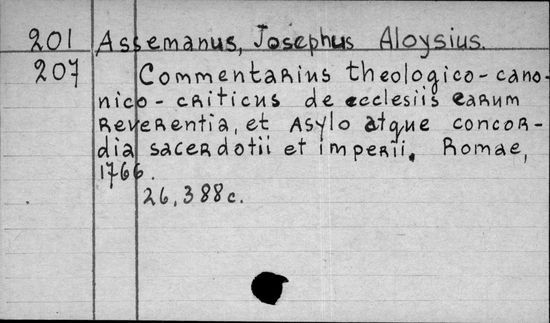 201 Assemanus, Josephus Aloysius.
207 Commentarius theologico-cano-
nico-criticus de ecclesiis earum
reverentia, et asylo atque concor-
dia sacerdotii et imperii. Romae,
1766.
26,388c.